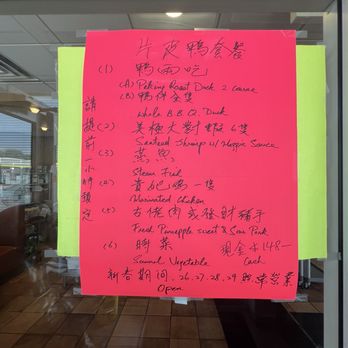 片皮鴨套餐
(1) 鴨兩吃
(A) Peking Roast Duck 2 course
(B) 鴨件全隻
Whole B.B.Q. Duck
(2) 美極大對蝦 6隻
Sauteed Shrimp w/ Maggie Sauce
(3) 蒸魚
Steam Fish
(4) 貴妃鷄一隻
Marinated Chicken
(5) 古佬肉或發財豬手
Fresh Pineapple sweet & Sour Pork
(6) 時菜 現金 $148—
Sauteed Vegetable Cash
新春期間, 26.27.28.29 照常營業
Open
請提前一小時鎖定